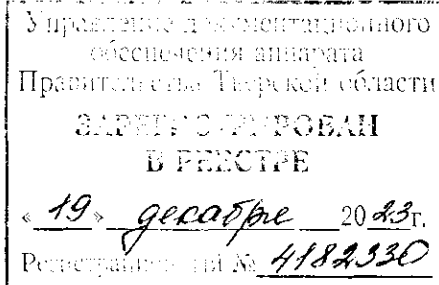 Управление документационного
обеспечения аппарата
Правительства Тверской области
ЗАРЕГИСТРИРОВАН
В РЕЕСТРЕ
« 19 » декабре 2023г.
Регистрационный № 4182330